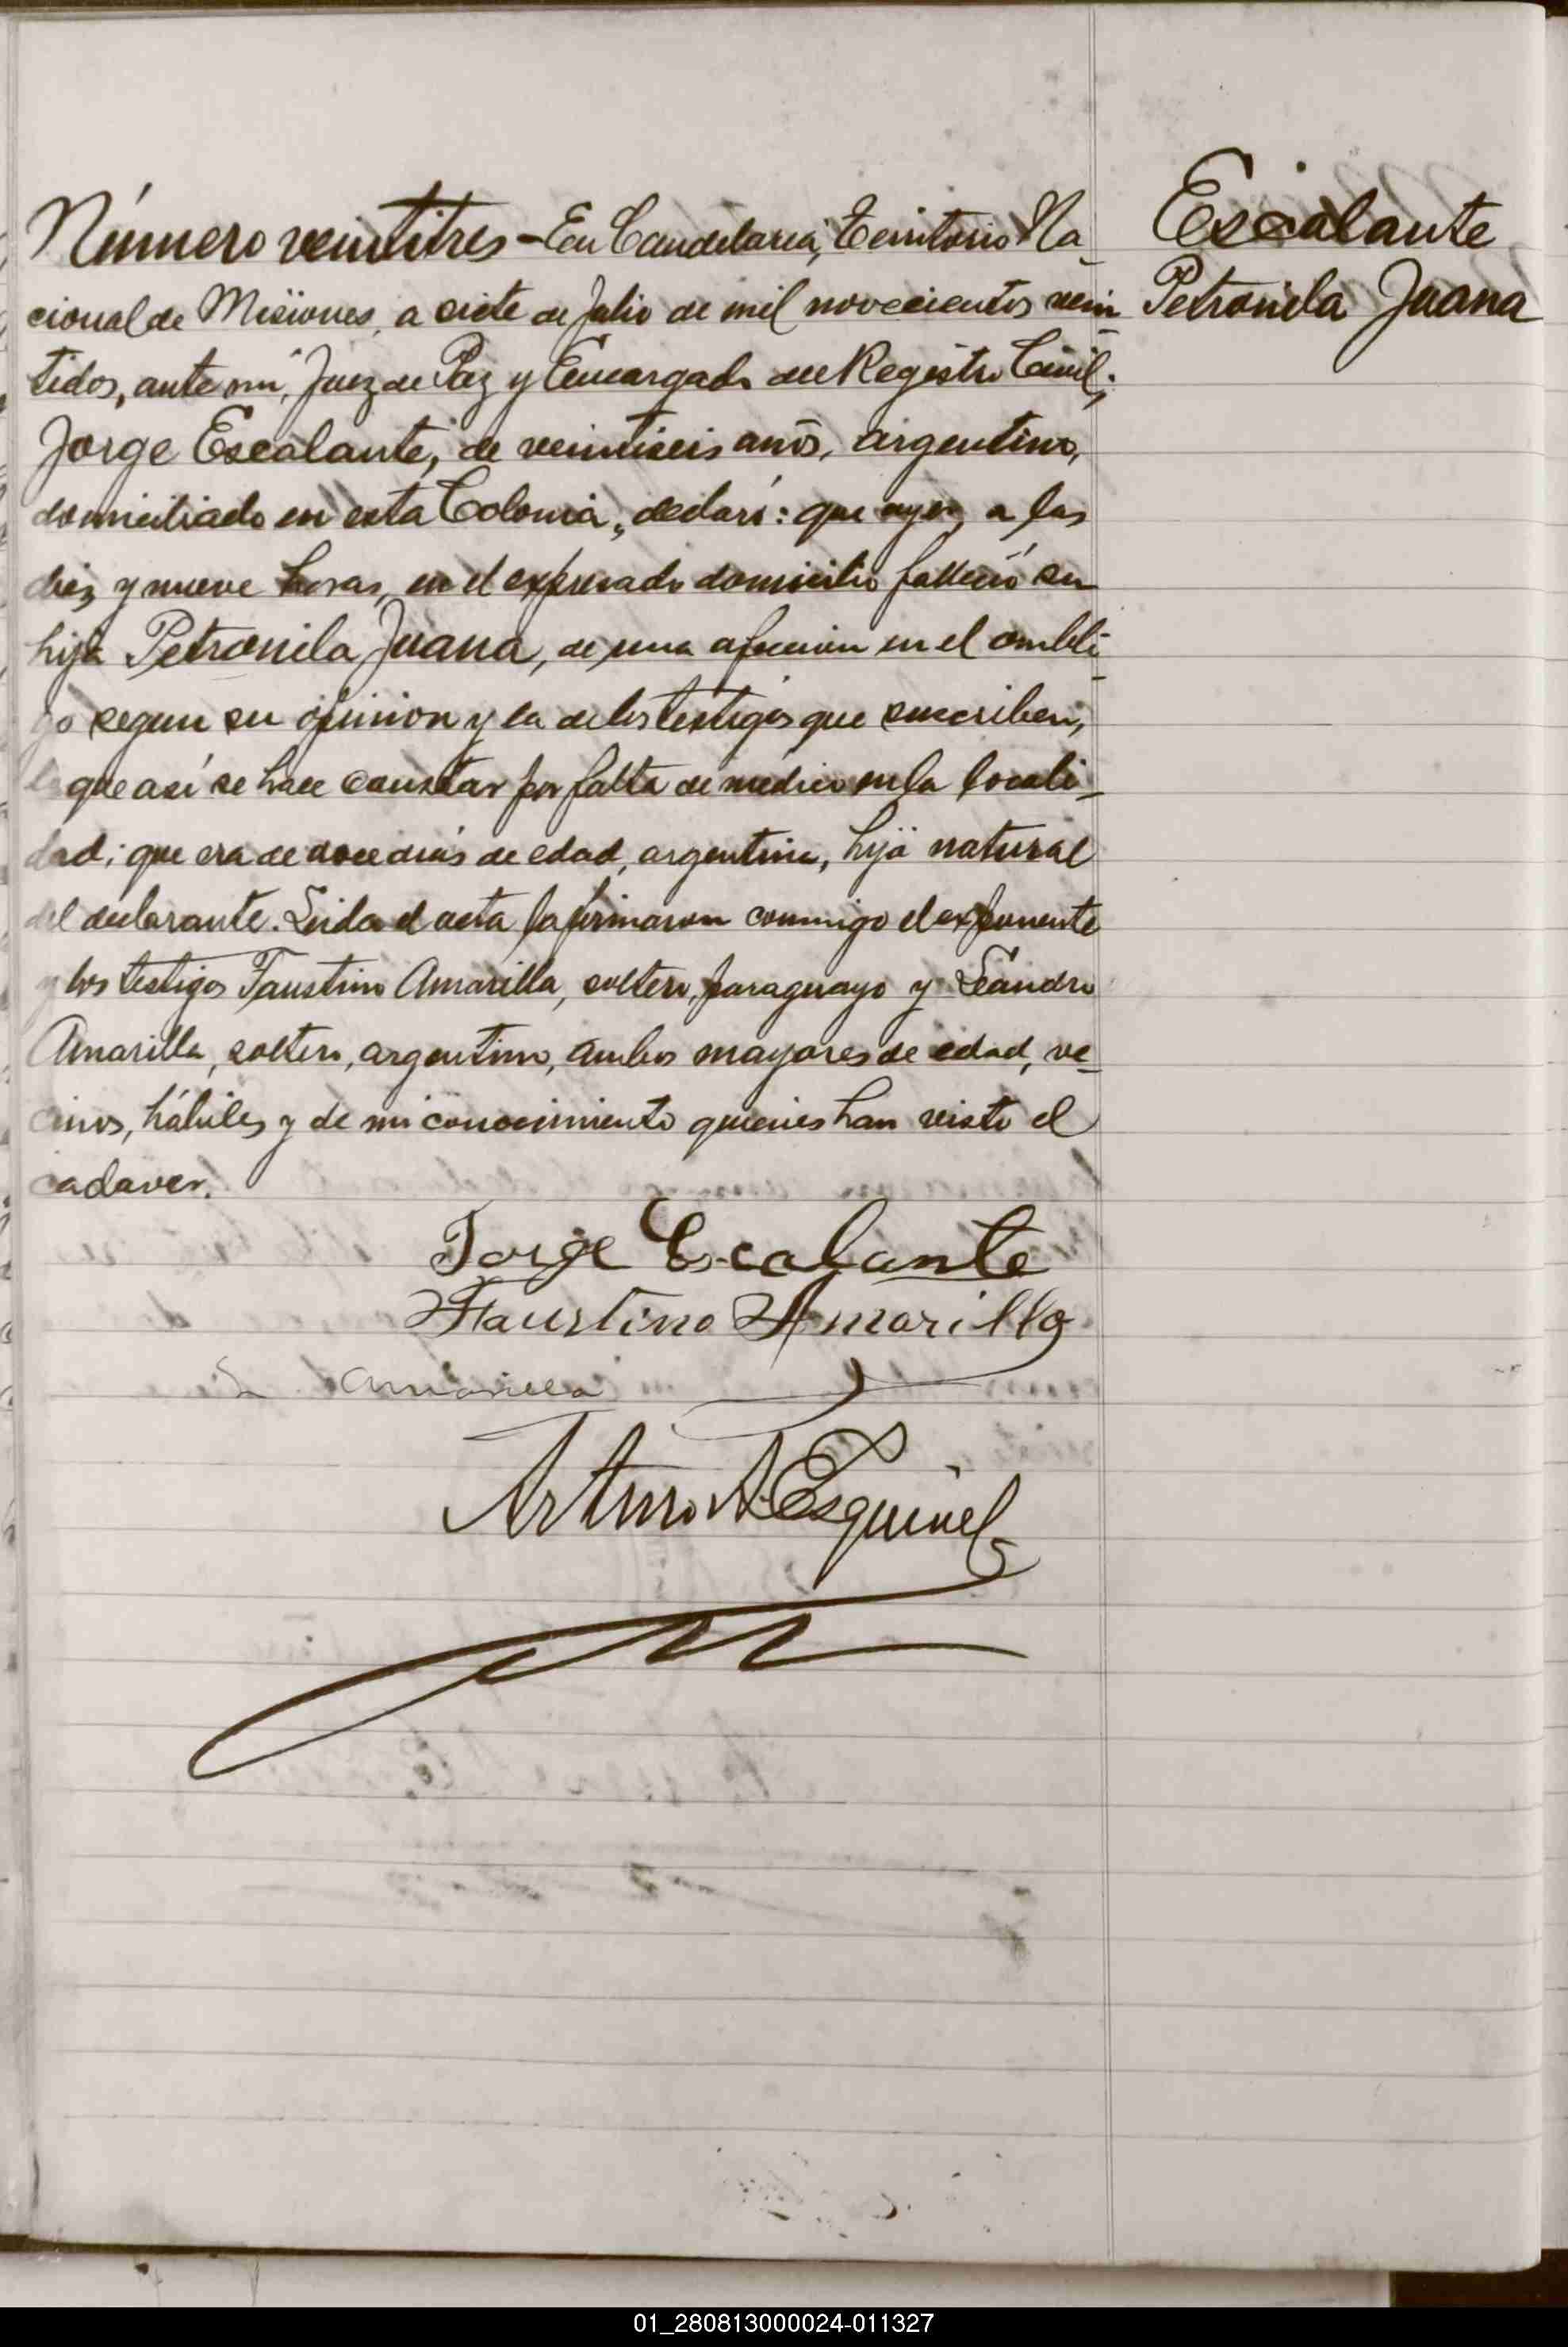 Número veintitres - En Candelaria, Territorio Na-
cional de Misiones, a siete de Julio de mil novecientos vein-
tidos, ante mi, Juez de Paz y Encargado del Registro Civil;
Jorge Escalante, de veintiseis años, argentino,
domiciliado en esta Colonia, declaró: que ayer, a las
diez y nueve horas, en el expresado domicilio falleció su
hija Petronila Juana, de una afeccion en el ombli-
go segun su opinion y la de los testigos que suscriben,
lo que así se hace constar por falta de médico en la locali-
dad; que era de doce dias de edad, argentina, hija natural
del declarante. Leida el acta la firmaron conmigo el exponente
y los testigos Faustino Amarilla, soltero, paraguayo y Leandro
Amarilla, soltero, argentino, ambos mayores de edad, ve-
cinos, hábiles y de mi conocimiento quienes han visto el
cadaver.
Escalante
Petronila Juana
Jorge Escalante
Faustino Amarilla
L Amarilla
Arturo A. Esquivel
01_280813000024-011327